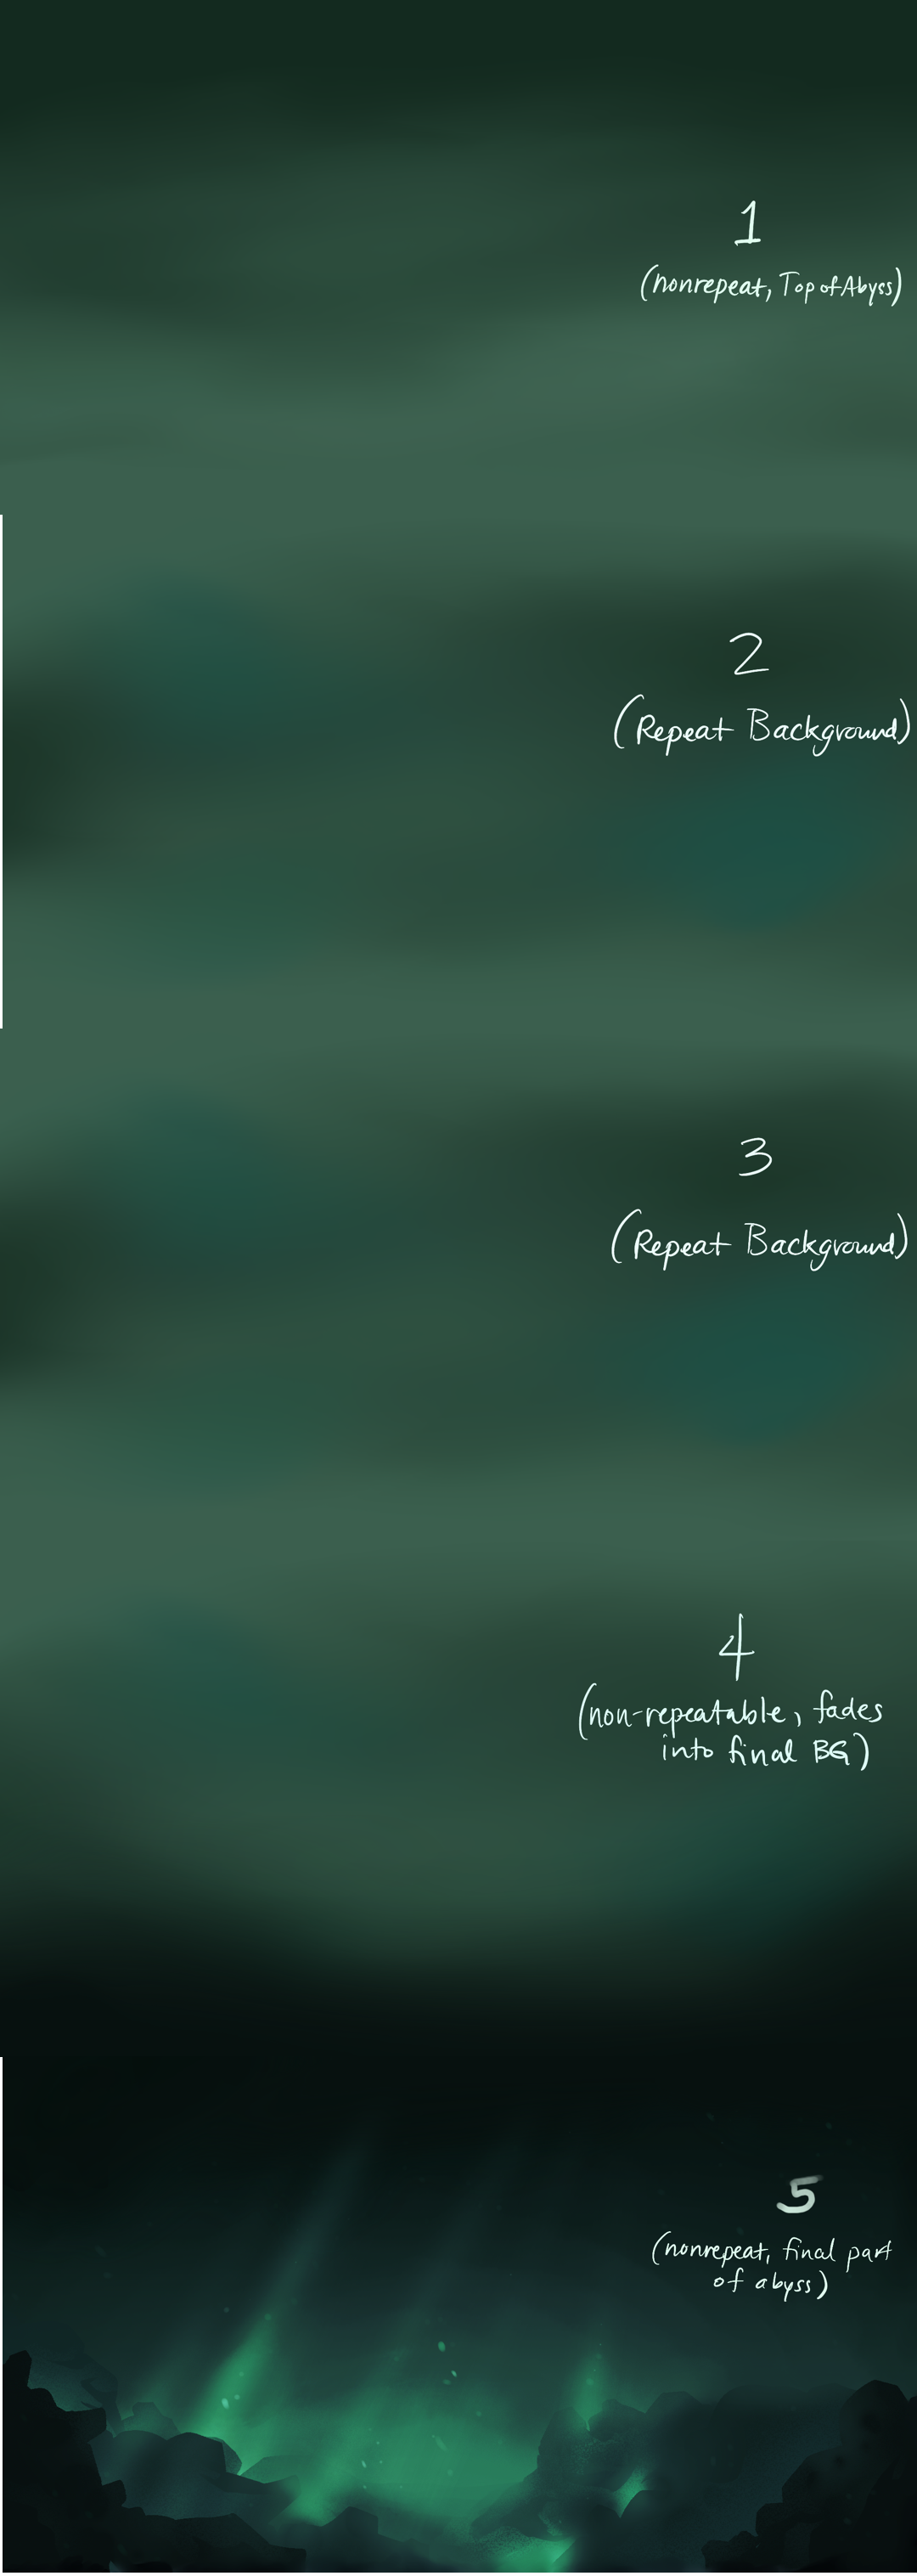 1
(nonrepeat, Top of Abyss)
2
(Repeat Background)
3
(Repeat Background)
4
(non-repeatable, fades
into final BG)
5
(nonrepeat, final part
of abyss)